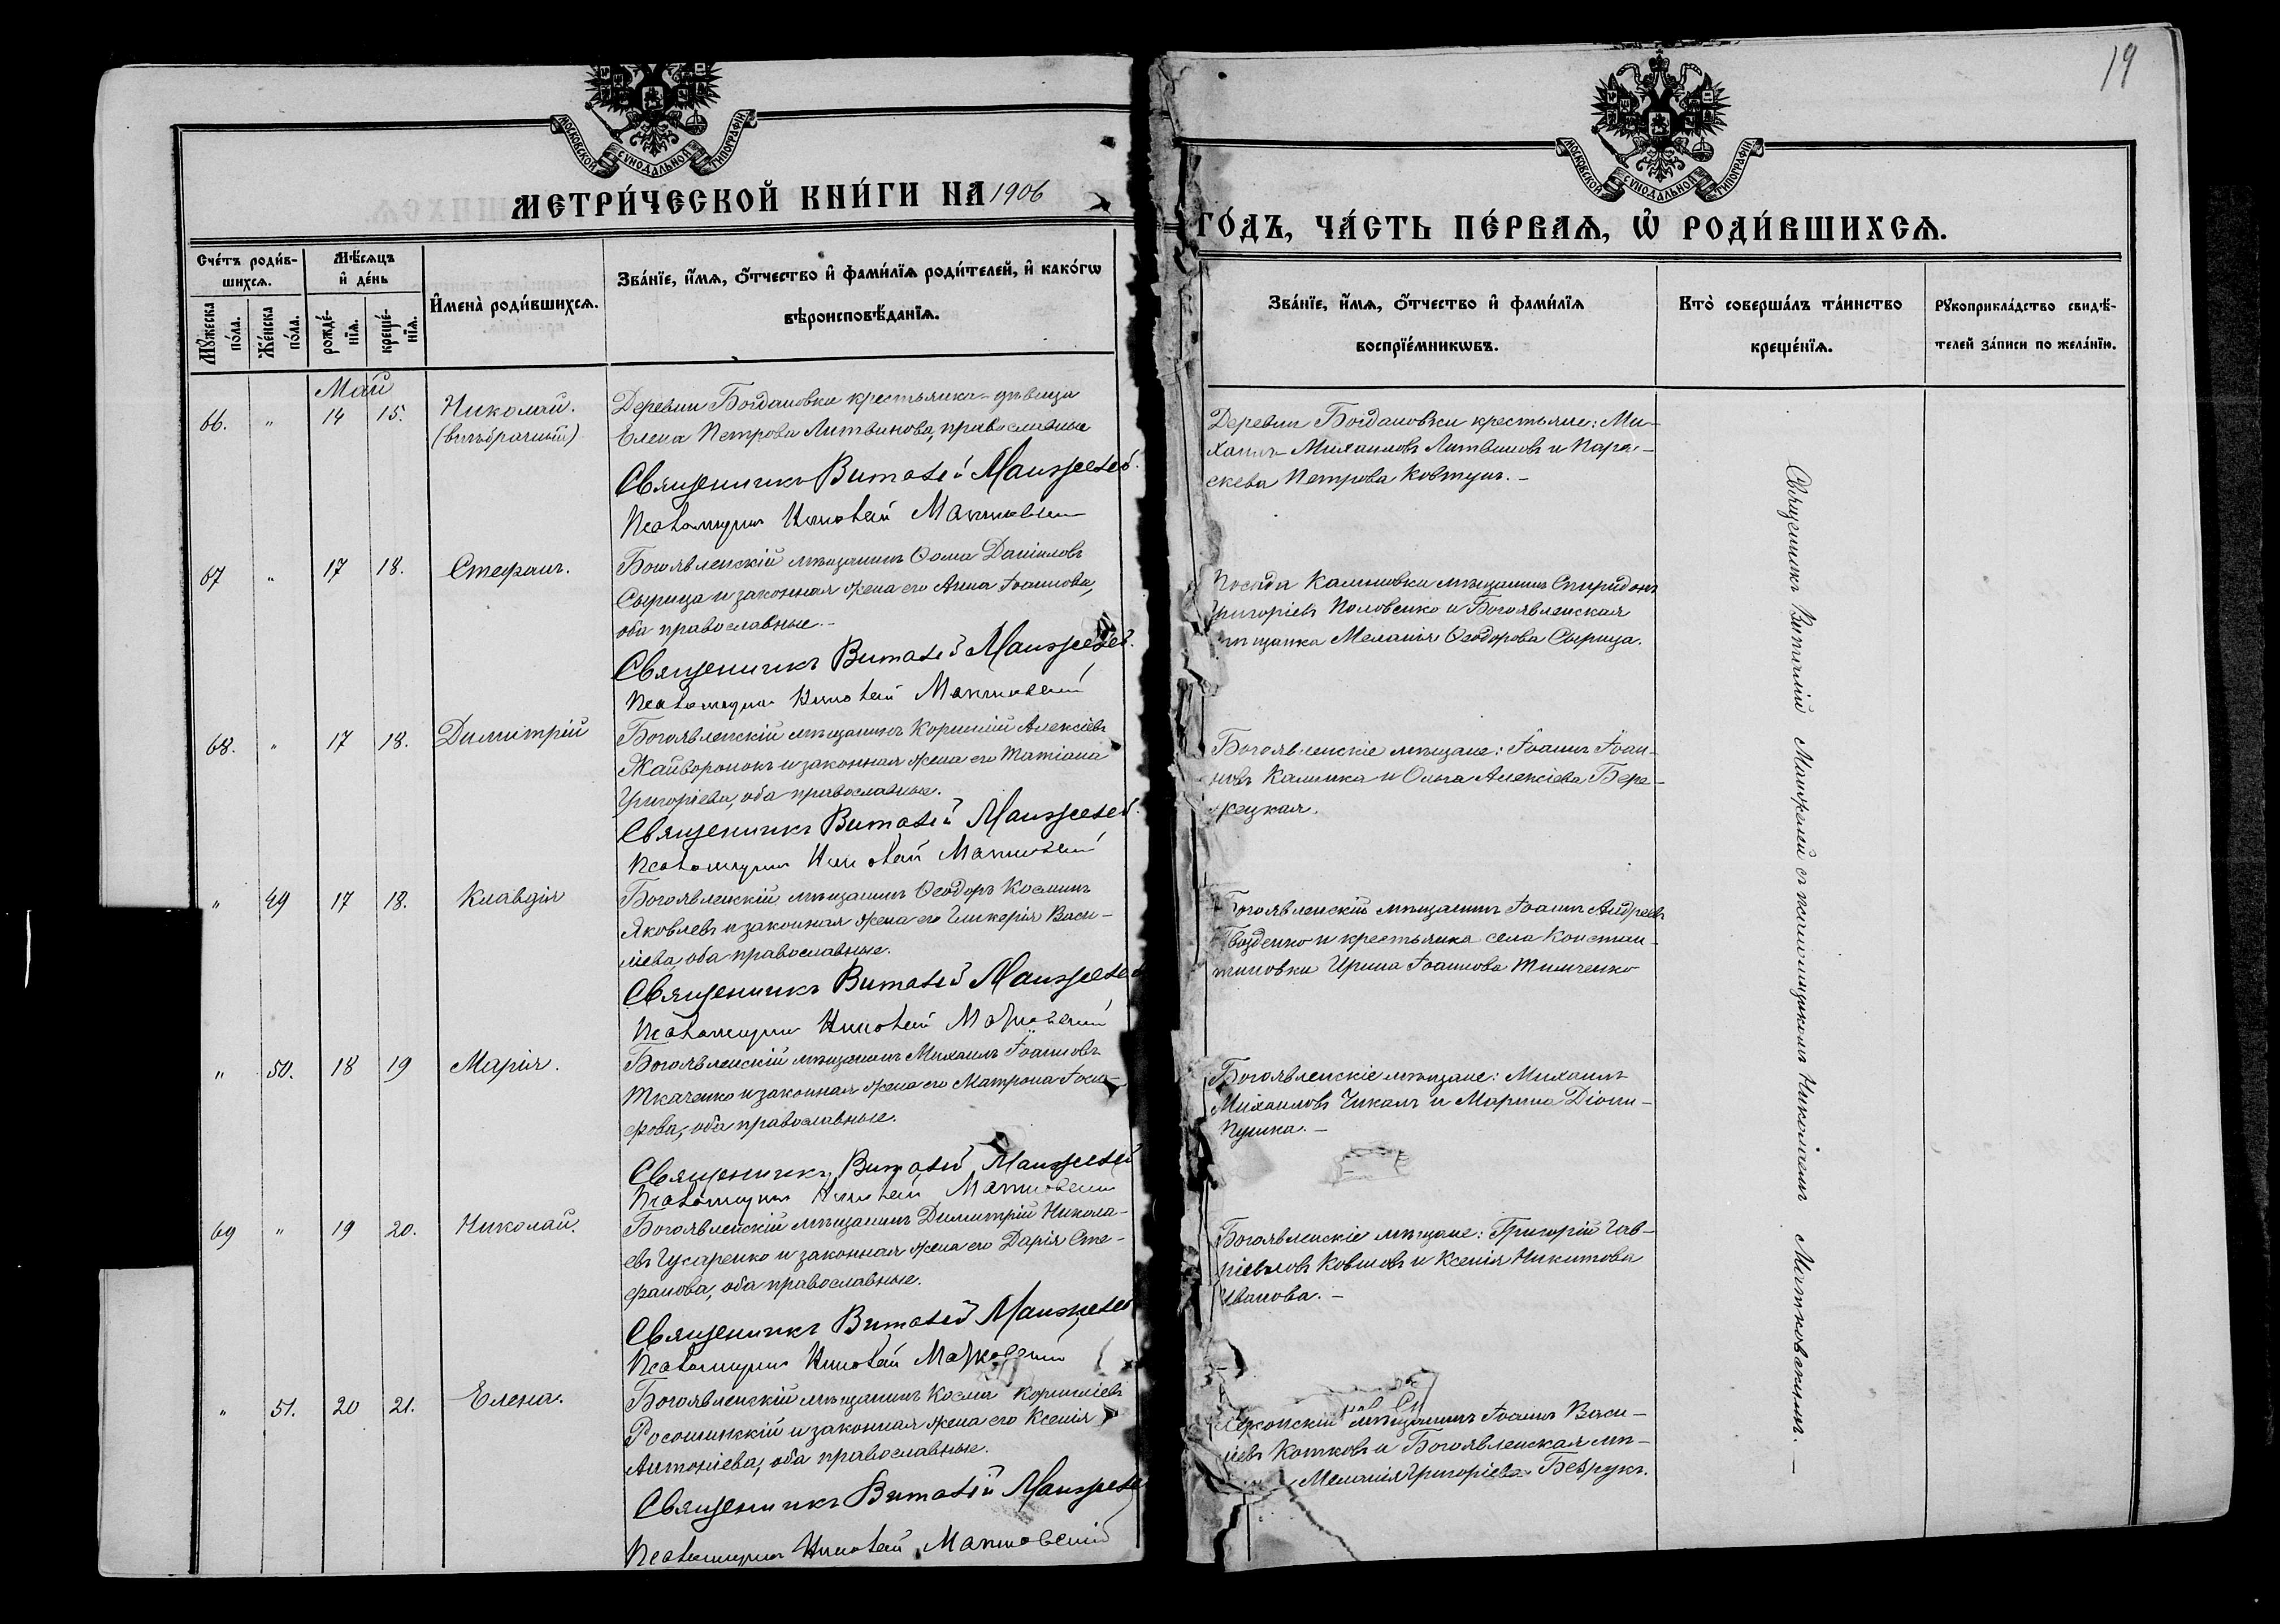 19
МОСКОВСКОЙ СУНОДАЛЬНОЙ ТИПОГРАФІИ
МОСКОВСКОЙ СУНОДАЛЬНОЙ ТИПОГРАФІИ
МЕТРИ́ЧЕСКОЙ КНИ́ГИ НА 1906
ГО́ДЪ, ЧА́СТЬ ПЕ́РВАѦ, Ѡ҆ РОДИ́ВШИХСѦ.
Сче́тъ роди́в-
шихсѧ.
Мꙋ́жеска
по́ла.
Же́нска
по́ла.
Мѣ́сѧцъ
и҆ де́нь
рожде́-
нїѧ.
креще́-
нїѧ.
И҆мена̀ роди́вшихсѧ.
Зва́нїе, и҆́мѧ, ѻ҆́тчество и҆ фами́лїѧ роди́телей, и҆ како́гѡ
вѣроисповѣ́данїѧ.
Зва́нїе, и҆́мѧ, ѻ҆́тчество и҆ фами́лїѧ
воспрїе́мникѡвъ.
Кто̀ соверша́лъ та́инство
креще́нїѧ.
Рꙋкоприкла́дство свидѣ́-
телей за́писи по жела́нїю.
Май
66. " 14 15. Николай.
(внѣбрачный)
Деревни Богдановки крестьянка-дѣвица
Елена Петрова Литвинова, православные
Священникъ Виталій
Псаломщикъ Николай
Деревни Богдановки крестьяне: Ми-
хаилъ Михаиловъ Литвиновъ и Пара-
скева Петрова Ковтунъ. -
67 " 17 18. Стефанъ.
Богоявленскій мѣщанинъ Ѳома Даніиловъ
Сырица и законная жена его Анна Іоаннова,
оба православные. -
Священникъ Виталій
Псаломщикъ Николай
Посада Калиновки мѣщанинъ Спиридонъ
Григоріевъ Половенко и Богоявленская
мѣщанка Меланія Ѳеодорова Сырица.
68. " 17 18. Димитрій
Богоявленскій мѣщанинъ Корнилій Алексіевъ
Жайворонокъ и законная жена его Татіана
Григоріева, оба православные.
Священникъ Виталій
Псаломщикъ Николай
Богоявленскіе мѣщане: Іоаннъ Іоан-
новъ Калинка и Ольга Алексіева Бере-
жецкая.
" 49 17 18. Клавдія
Богоявленскій мѣщанинъ Ѳеодоръ Косминъ
Яковлевъ и законная жена его Гликерія Васи-
ліева, оба православные.
Священникъ Виталій
Псаломщикъ Николай
Богоявленскій мѣщанинъ Іоаннъ Андреевъ
Гвозденко и крестьянка села Констан-
тиновки Ирина Іоаннова Тимченко
" 50. 18 19 Марія.
Богоявленскій мѣщанинъ Михаилъ Іоанновъ
Ткаченко и законная жена его Матрона
оба православные.
Священникъ Виталій
Псаломщикъ Николай
Богоявленскіе мѣщане: Михаилъ
Михаиловъ Чикалъ и Марина Діони-
69 " 19 20. Николай.
Богоявленскій мѣщанинъ Димитрій Никола-
евъ Гусаренко и законная жена его Дарія Сте-
фанова, оба православные.
Священникъ Виталій
Псаломщикъ Николай
Богоявленскіе мѣщане: Григорій Гав-
ріиловъ Ковшовъ и Ксенія Никитова
Иванова. -
" 51. 20 21. Елена.
Богоявленскій мѣщанинъ Косма Корниліевъ
и законная жена его Ксенія
Антоніева, оба православные.
Священникъ Виталій
Псаломщикъ Николай
Херсонскій мѣщанинъ Іоаннъ Васи-
ліевъ Котковъ и Богоявленская мѣ-
Меланія Григоріева
Священникъ Виталій съ псаломщикомъ Николаемъ